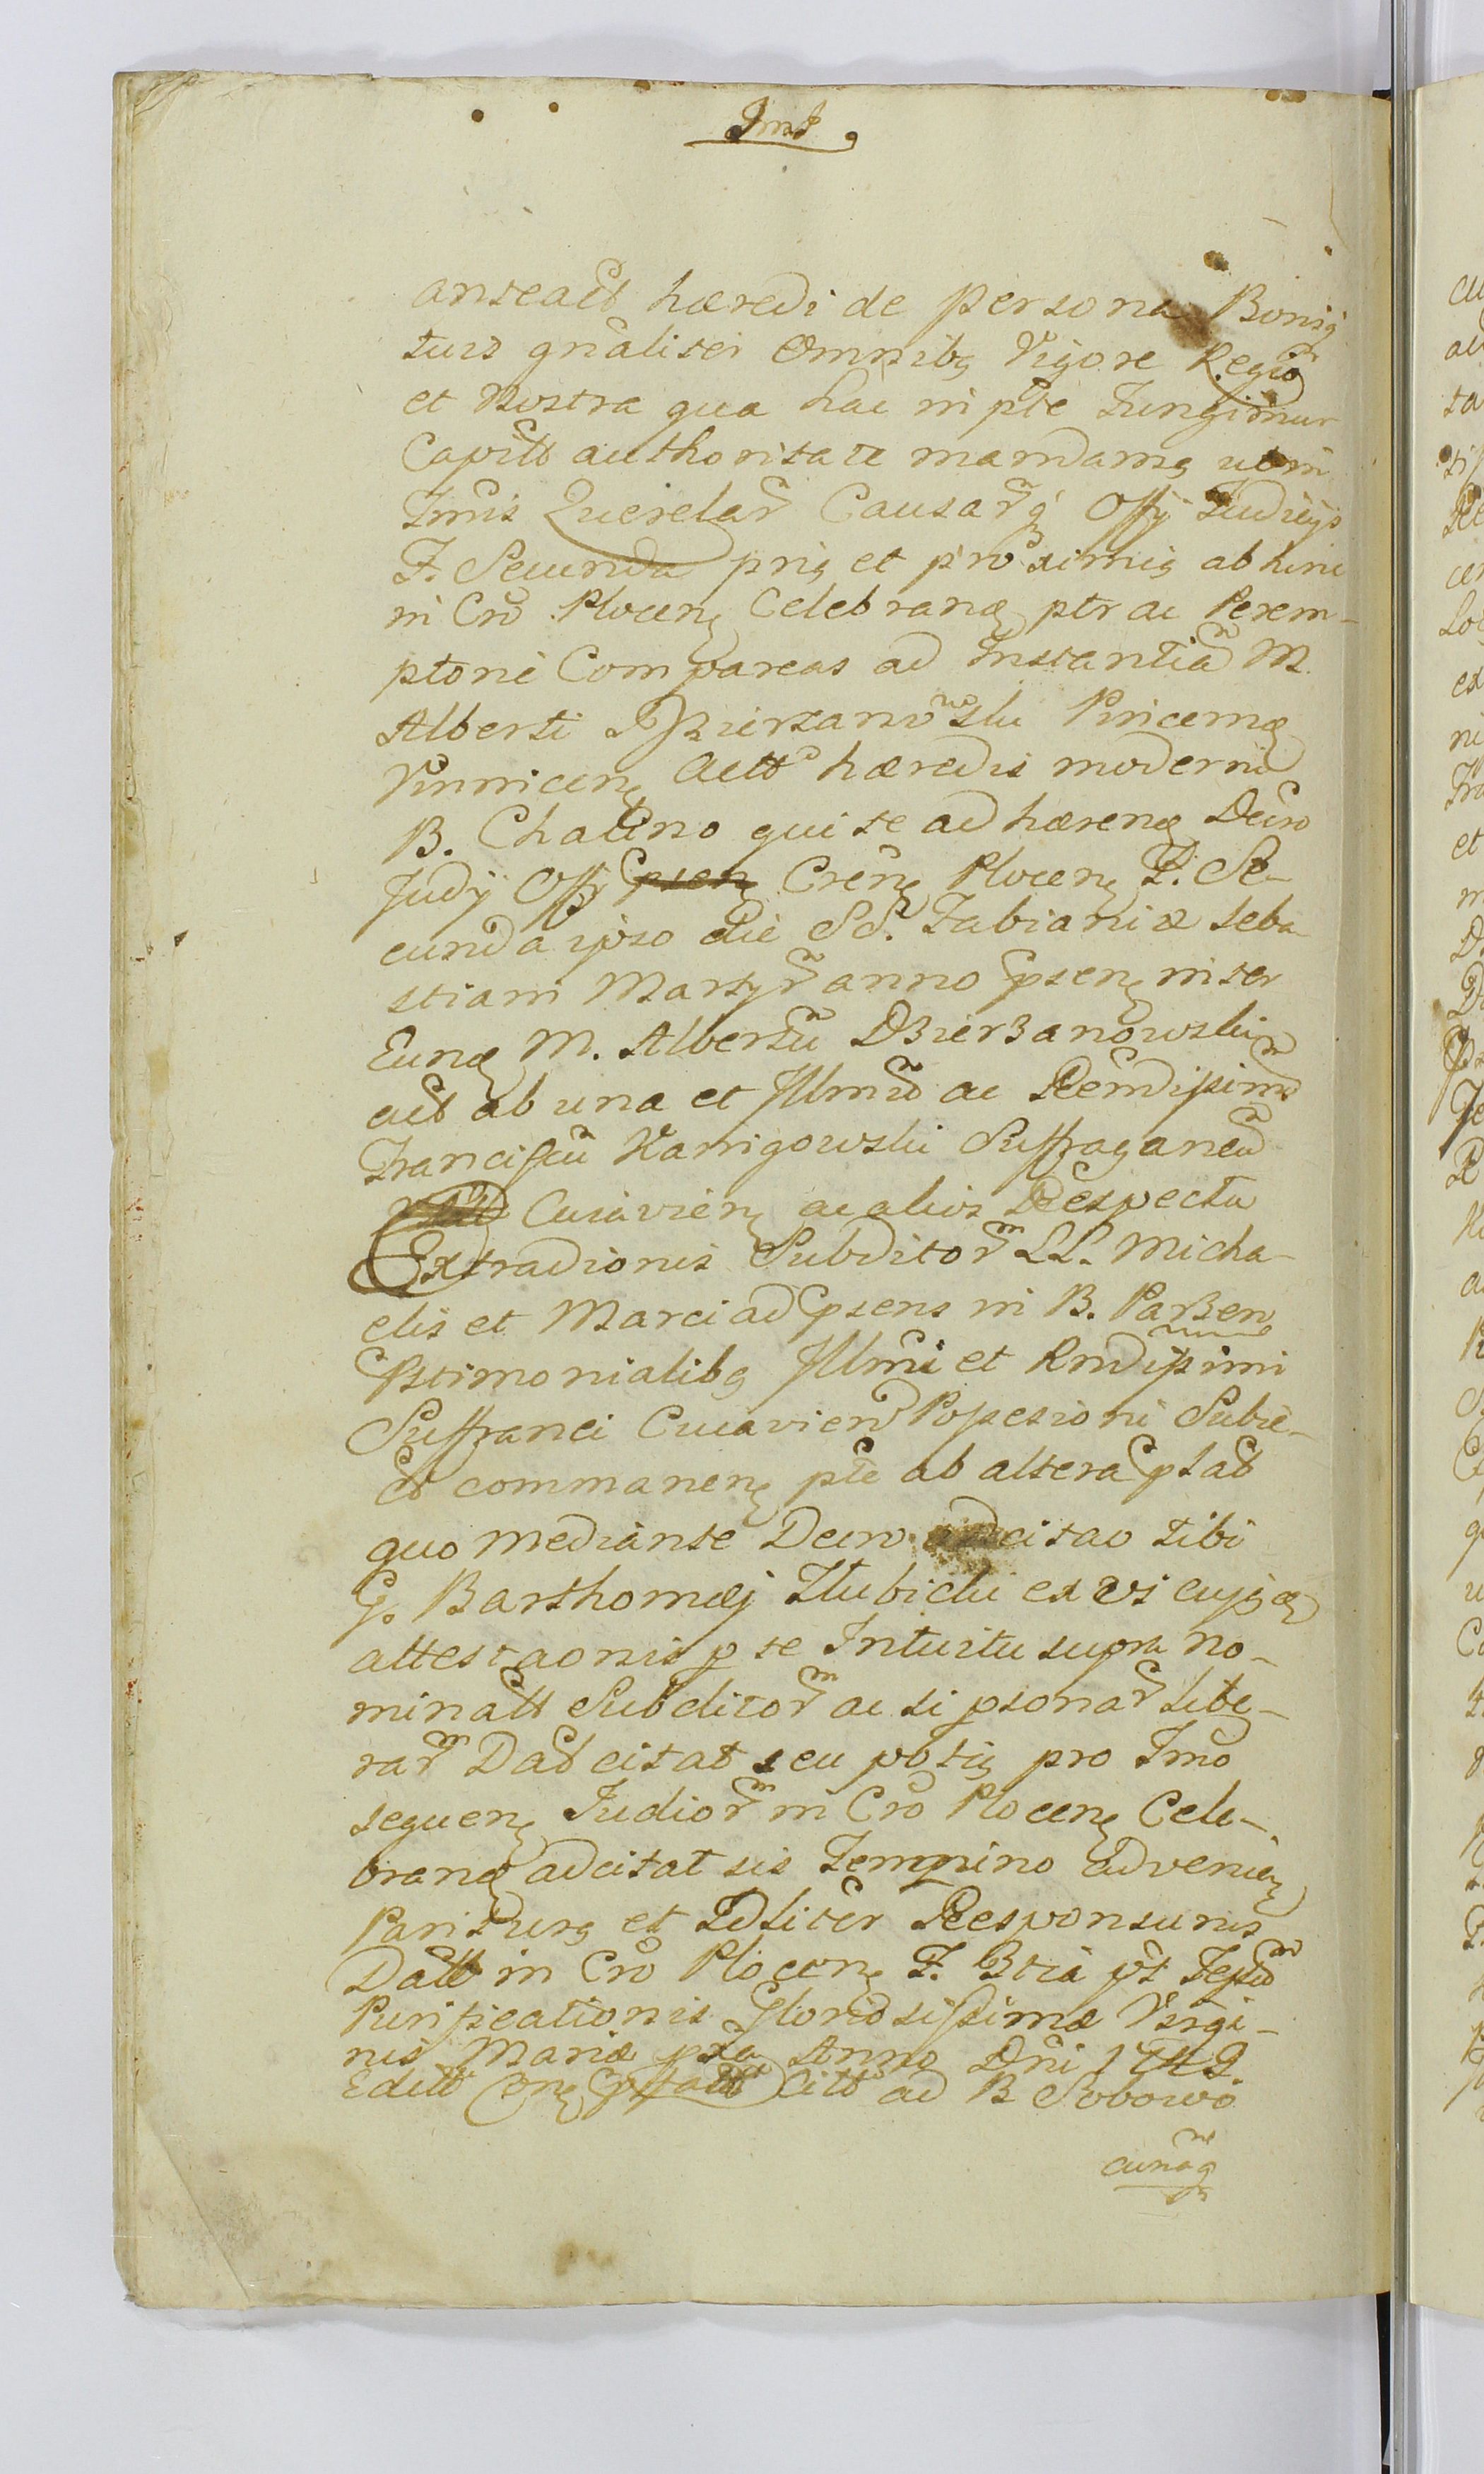 anteact hæredi de persona Bonisq
tuis gnaliter Omnibq Vigore Regia
et Nostra qua hac in pte Fungimur
Capitt authoritate mandamq ut in
Tmis Querelar Causarq Offy Judicijs
F. Secunda pris et proximis abhinc
in Cro Plocen Celebrand ptr ac Perem-
ptorie Compareas ad Instantia M.
Alberti Dzierzanowski Pincernæ
Vinnicen Actt hæredis moderni
B. Chalino qui te adhæren Decro
Judy Offy psen Cren Plocen F. Se-
cunda ipso die SS. Fabiani & Seba
stiani Martyr anno psen inter
Eund M. Albertu Dzierzanowski
act ab una et Illmu ac Rendissimu
Franciscu Kanigowski Suffraganeu
Cuiavien ac alios Respectu
Extradionis Subditor LL. Micha-
elis et Marci ad psens in B. Parzen
Pstimonialibq Illmi et Rmdissimi
Suffranei Cuiavien Possesioni Subie-
ct commanen pte ab altera plat
quo mediante Decro adcitao tibi
G. Barthomæj Hubicki ex vi cujq
attestaonis p te Intuitu supra no-
minatt Subditor ac si psonar libe-
rar Dat citat seu potiq pro Tmo
sequen Judior in Cro Plocen Cele-
brand adcitat sis Termino advenien
Pariturq et Idliter Responsurus
Datt in Cro Plocen F. 3tia pt Festu
Purificationis Gloriosissimæ Virgi-
nis Mariæ Anno Dni 1749.
Editt Con citt ad B Sobowo